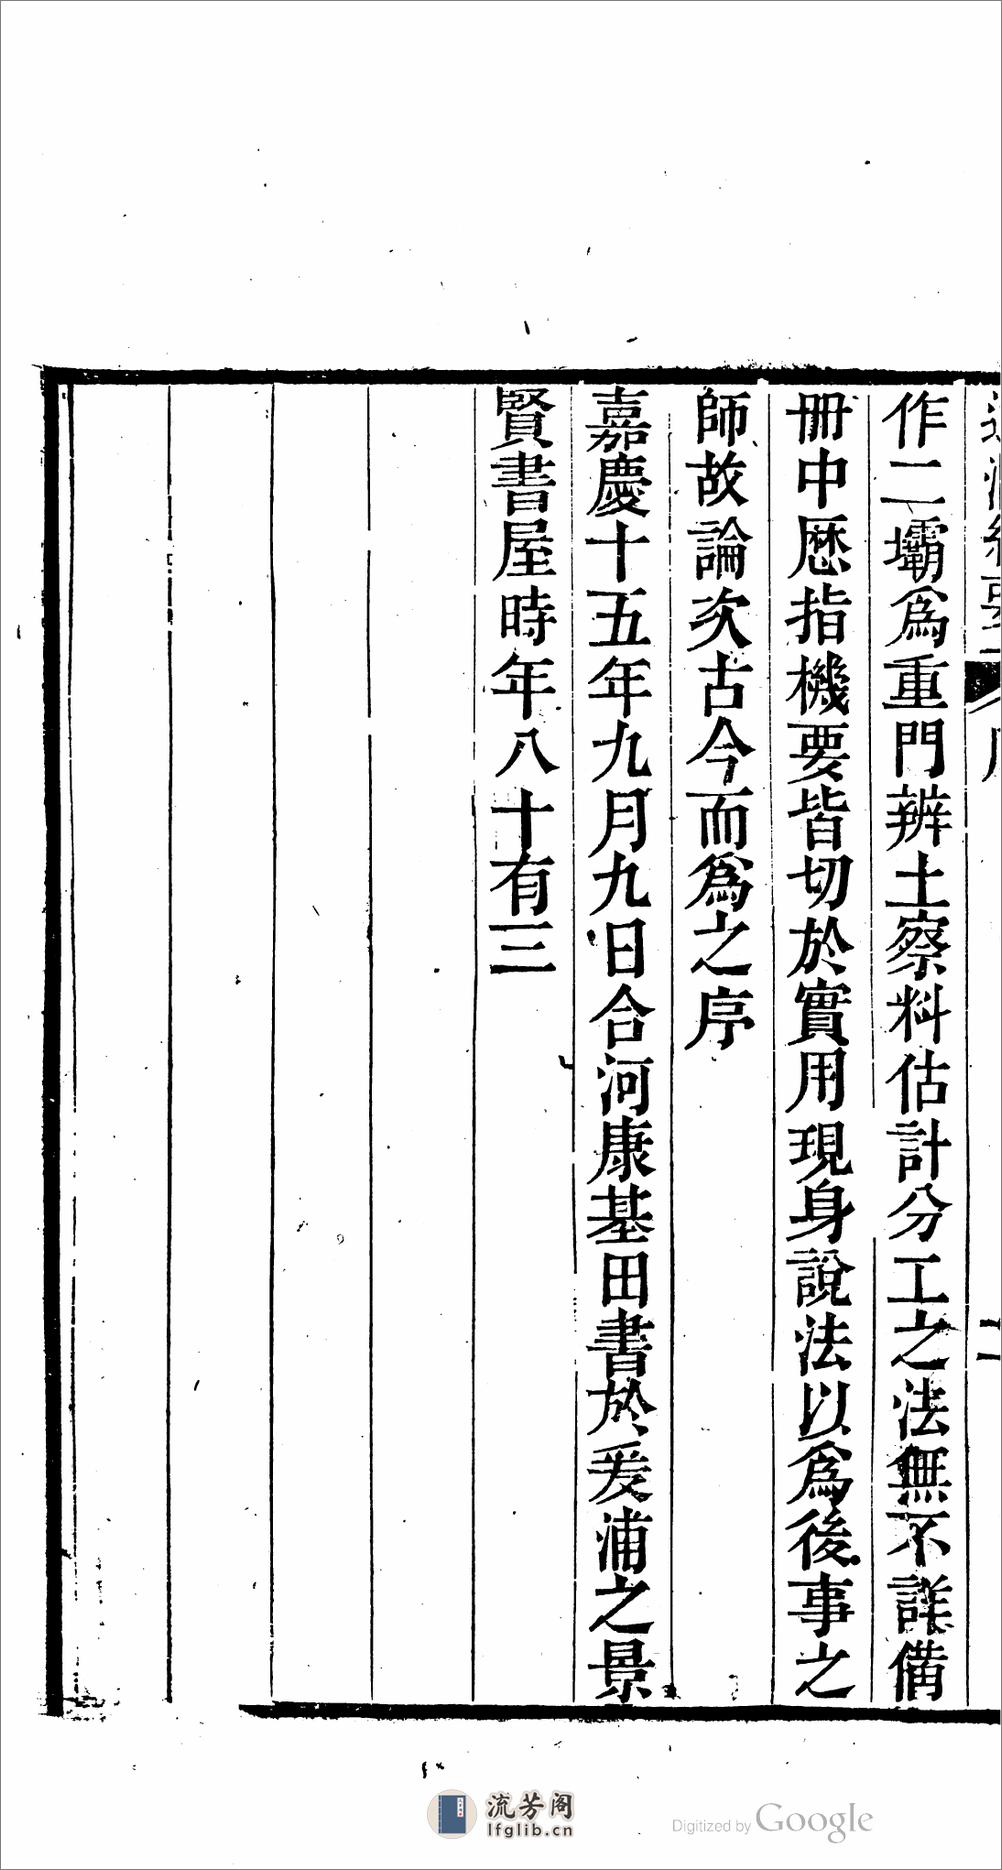 作二壩爲重門辨土察料估計分工之法無不詳備
冊中歷指機要皆切於實用現身說法以爲後事之
師故論次古今而爲之序
嘉慶十五年九月九日合河康基田書於爰浦之景
賢書屋時年八十有三
流芳阁
lfglib.cn
Digitized by Google